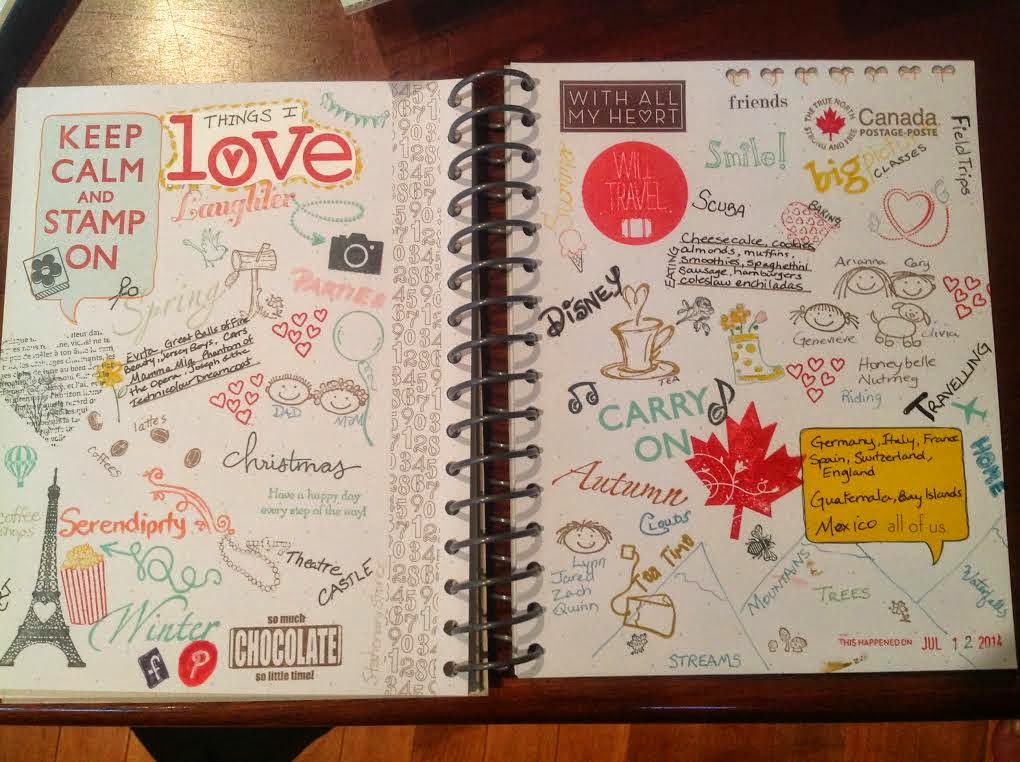 KEEP
CALM
AND
STAMP
ON
THINGS I
love
Laughter
PARTIES
Spring
Evita Great Balls of Fire
Beauty, Jersey Boys, Cats
Mamma Mia Phantom of
the Opera, Joseph & the
Technicolour Dreamcoat
D&D
MOM
lattes
coffees
christmas
Have a happy day
every step of the way!
coffee
shops
Serendipity
Theatre
CASTLE
Winter
so much
CHOCOLATE
so little time!
f
WITH ALL
MY HEART
friends
THE TRUE NORTH
STRONG AND FREE
Canada
POSTAGE-POSTE
Field Trips
Smile!
big picture
CLASSES
Summer
WILL
TRAVEL
SCUBA
BAKING
EATING
Cheesecake, cookies
almonds, muffins,
Smoothies, spaghettini
sausage, hamburgers
coleslaw enchiladas
Arianna
Cary
DISNEY
Genevieve
Olivia
TEA
Honeybelle
Nutmeg
Riding
TRAVELLING
CARRY
ON
HOME
Germany, Italy, France
Spain, Switzerland,
England
Guatemala, Bay Islands
Mexico all of us
Autumn
Clouds
Lynn
Jared
Zach
Quinn
MOUNTAINS
TREES
Waterfalls
STREAMS
THIS HAPPENED ON JUL 12 2014